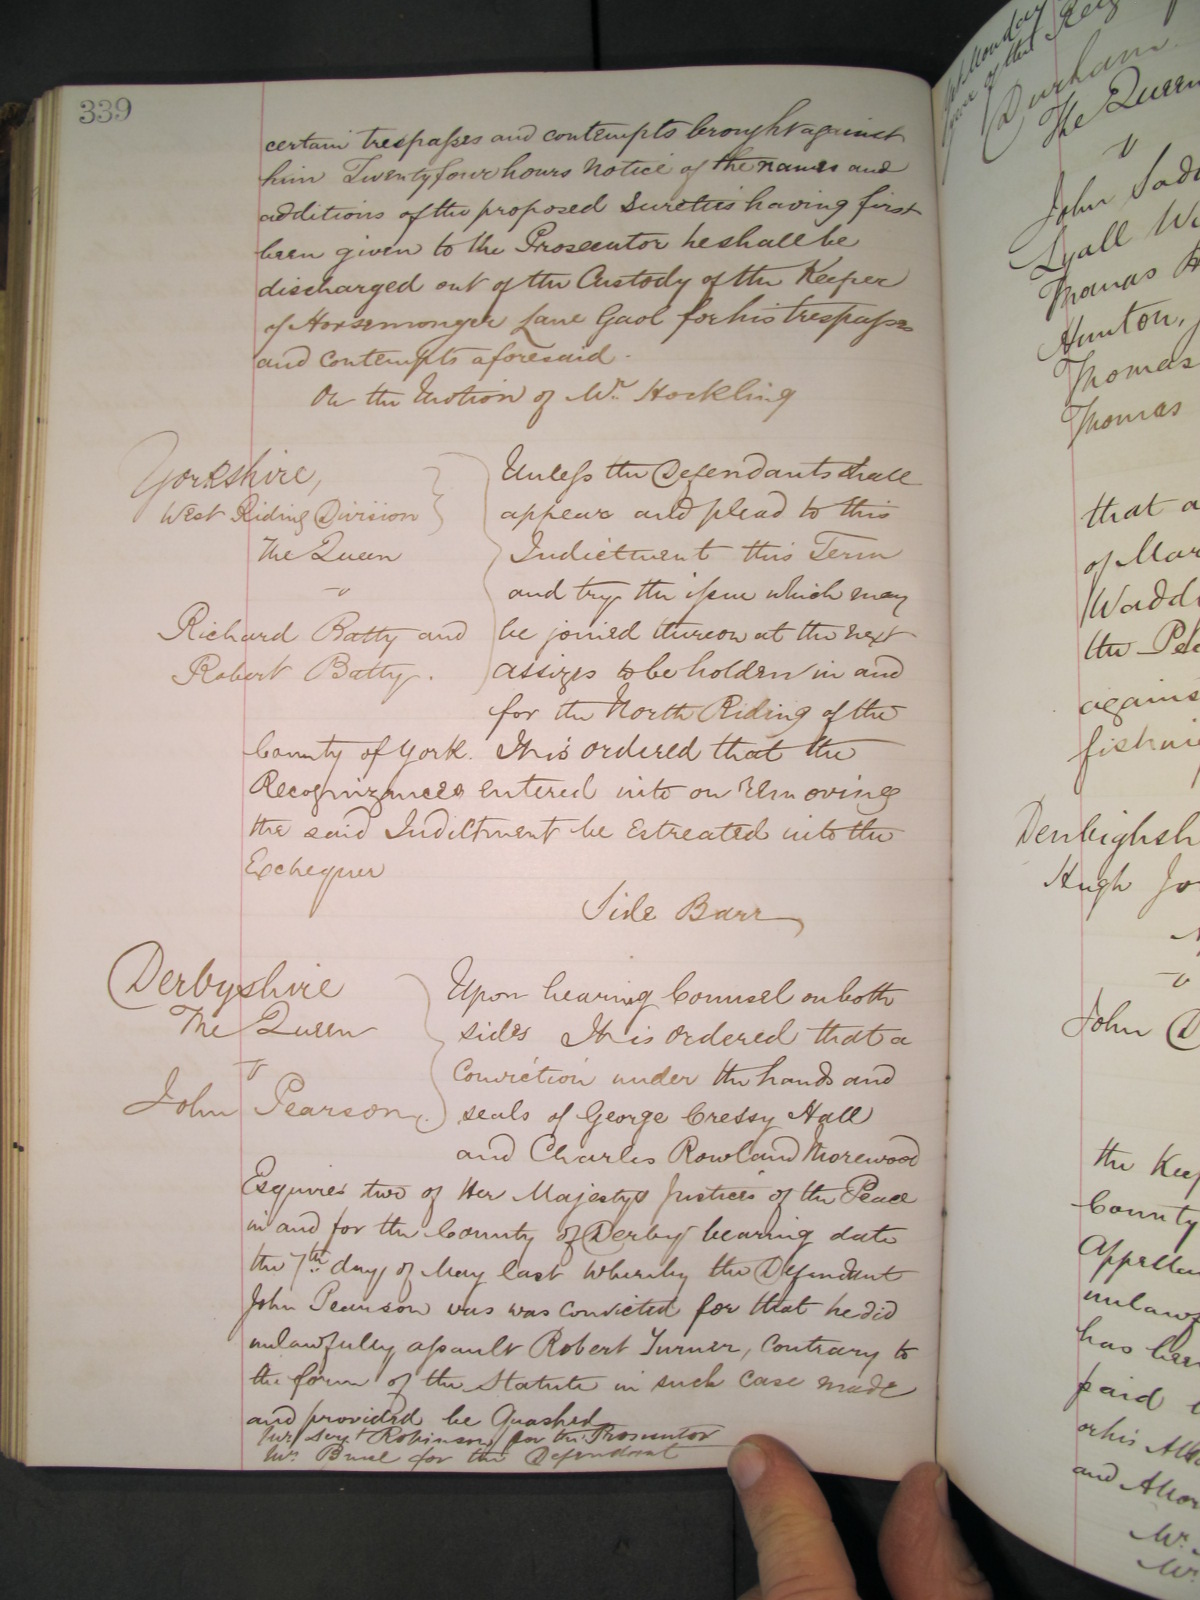 339
certain trespasses and contempts brought against
him Twenty four hours Notice of the names and
additions of the proposed Sureties having first
been given to the Prosecutor he shall be
discharged out of the Custody of the Keeper
of Horsemonger Lane Gaol for his trespasses
and contempts aforesaid.
On the Motion of Mr. Hockling
Yorkshire,
West Riding Division
The Queen
v
Richard Batty and
Robert Batty.
Unless the Defendants shall
appear and plead to this
Indictment this Term
and try the issue which may
be joined thereon at the next
assizes to be holden in and
for the North Riding of the
County of York. It is ordered that the
Recognizances entered into on removing
the said Indictment be Estreated into the
Exchequer
Side Barr
Derbyshire
The Queen
v
John Pearson.
Upon hearing Counsel on both
sides It is ordered that a
Conviction under the hands and
seals of George Cressy Hall
and Charles Rowland Morewood
Esquires two of Her Majestys Justices of the Peace
in and for the County of Derby bearing date
the 7th. day of May last Whereby the Defendant
John Pearson was was convicted for that he did
unlawfully assault Robert Turner, Contrary to
the form of the Statute in such case made
and provided be Quashed
Mr. Serjt. Robinson for the Prosecutor
Mr. for the Defendant
Durham
The Queen
v
John
Lyall
Thomas
Hunton,
Thomas
Thomas
that
of
the
Hugh
v
John
the
County
has been
paid
and
Mr.